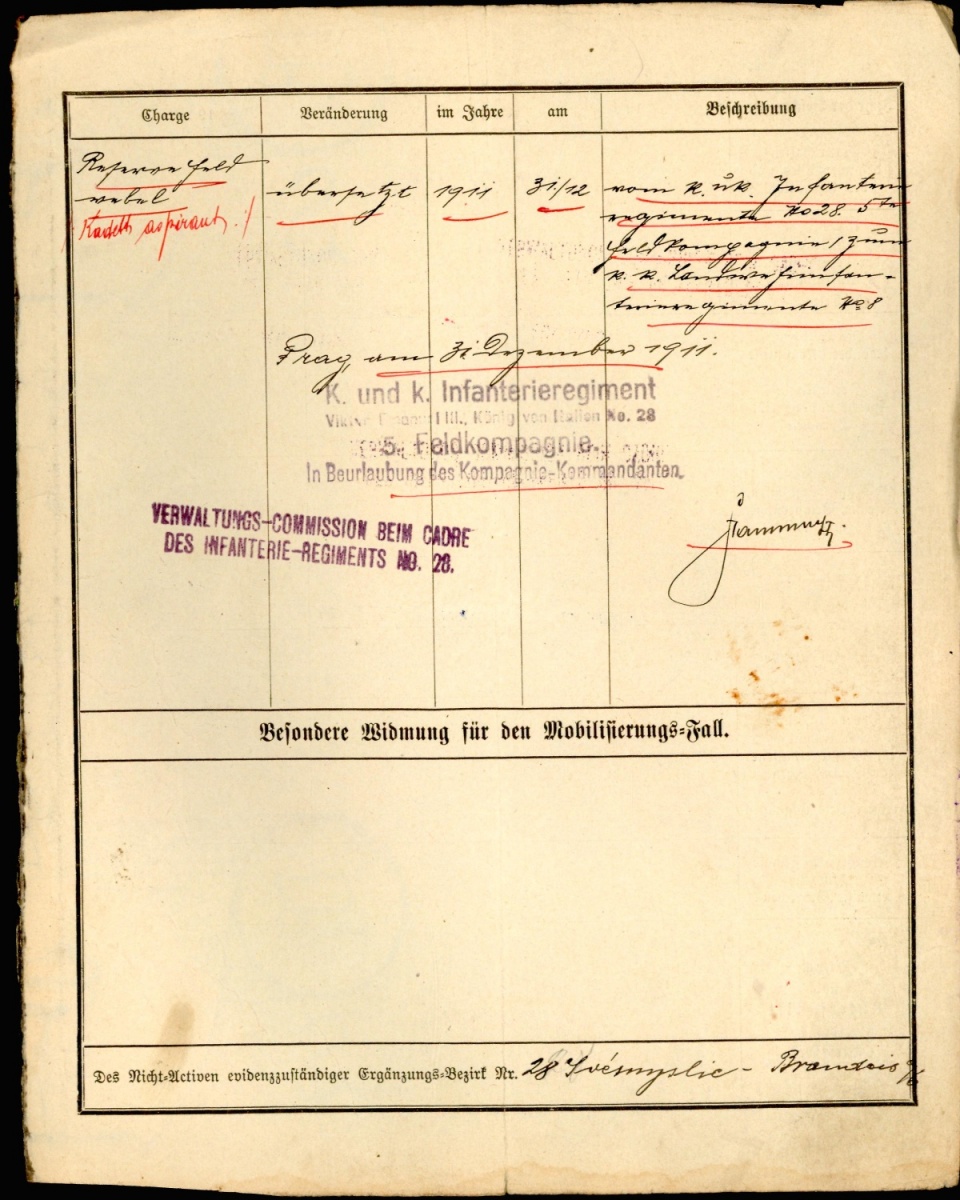 Charge Veränderung im Jahre am Beschreibung
Reservefeld
webel
/: Kadettaspirant :/
übersetzt 1911 31/12
vom k. u. k. Infanterie
regimente No 28. 5te
Feldkompagnie, zum
k. k. Landwehrinfan-
terieregimente No 8
Prag, am 31. Dezember 1911.
K. und k. Infanterieregiment
Viktor Emanuel III., König von Italien No. 28
5. Feldkompagnie.
In Beurlaubung des Kompagnie-Kommandanten.
VERWALTUNGS-COMMISSION BEIM CADRE
DES INFANTERIE-REGIMENTS NO. 28.
Besondere Widmung für den Mobilisierungs-Fall.
Des Nicht-Activen evidenzzuständiger Ergänzungs-Bezirk Nr. 28 - Brandeis a/E